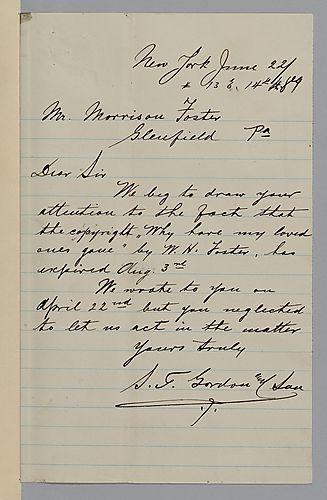 New York June 22/
13 E. 14th St. 89
Mr. Morrison Foster
Glenfield Pa
Dear Sir
We beg to draw your
attention to the fact that
the copyright "Why have my loved
ones gone" by W. H. Foster, has
expired Aug. 3rd
We wrote to you on
April 22nd but you neglected
to let us act in the matter
Yours truly
S. T. Gordon & Son